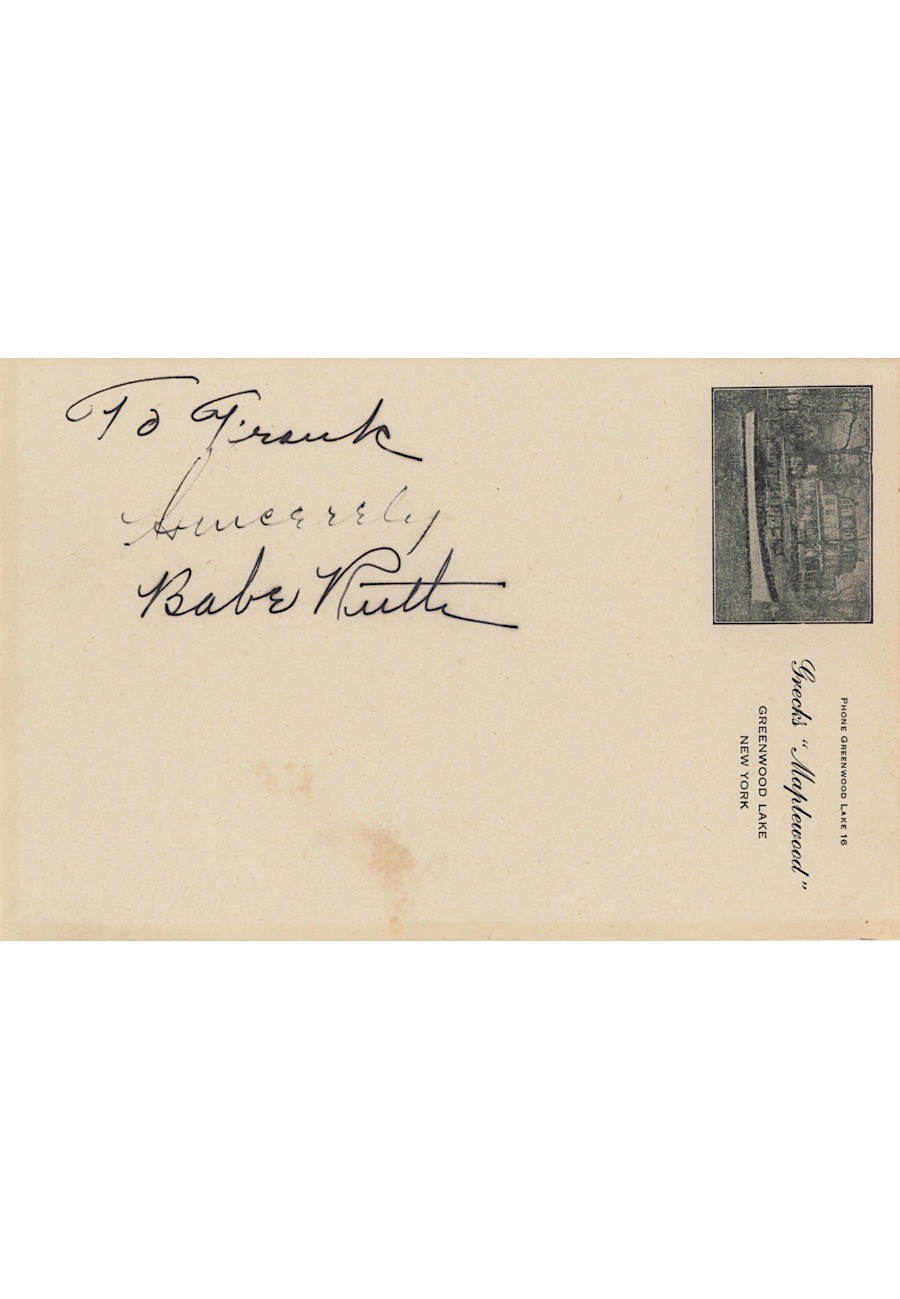 To Frank
Sincerely
Babe Ruth
PHONE GREENWOOD LAKE 16
Greck's "Maplewood"
GREENWOOD LAKE
NEW YORK